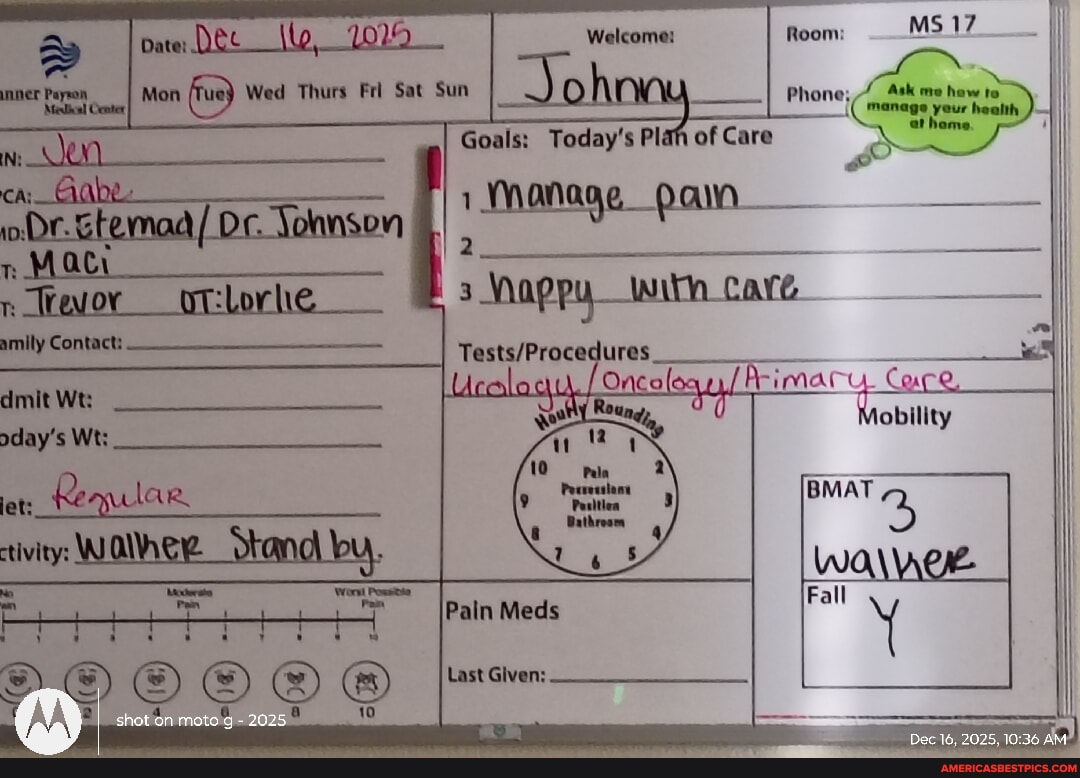 Date: Dec 16, 2025
Mon Tue Wed Thurs Fri Sat Sun
anner Payson
Medical Center
Welcome:
Johnny
Room: MS 17
Phone:
Ask me how to
manage your health
at home.
RN: Jen
PCA: Gabe
MD: Dr. Etemad/Dr. Johnson
T: Maci
T: Trevor OT: Lorlie
amily Contact:
dmit Wt:
oday's Wt:
iet: Regular
ctivity: Walker Stand by.
Goals: Today's Plan of Care
1 manage pain
2
3 happy with care
Tests/Procedures
Urology/Oncology/Primary Care
Hourly Rounding
12 1 2 3 4 5 6 7 8 9 10 11
Pain
Possessions
Position
Bathroom
Mobility
BMAT 3
Walker
Fall Y
Pain Meds
Last Given:
No
Pain
Moderate
Pain
Worst Possible
Pain
2 4 6 8 10
shot on moto g - 2025
Dec 16, 2025, 10:36 AM
AMERICASBESTPICS.COM